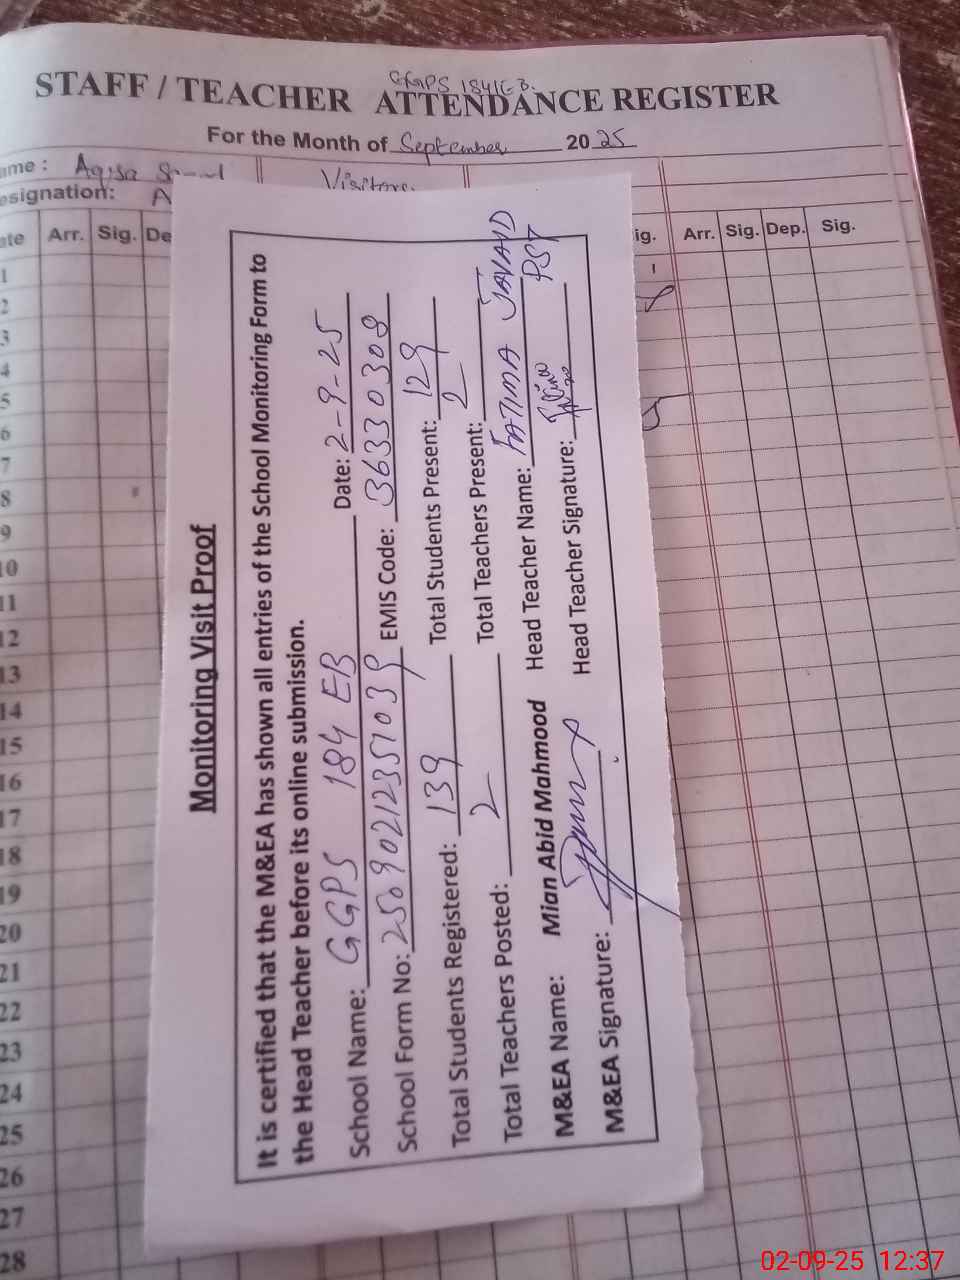 GGPS 184/EB.
STAFF / TEACHER ATTENDANCE REGISTER
For the Month of September 2025
ame : Aqisa
Visitors.
esignation: A
ate Arr. Sig. De ig. Arr. Sig. Dep. Sig.
1
2
3
4
5
6
7
8
9
10
11
12
13
14
15
16
17
18
19
20
21
22
23
24
25
26
27
28
Monitoring Visit Proof
It is certified that the M&EA has shown all entries of the School Monitoring Form to
the Head Teacher before its online submission.
School Name: GGPS 184 EB Date: 2-9-25
School Form No: EMIS Code: 36330308
Total Students Registered: 139 Total Students Present: 129
Total Teachers Posted: 2 Total Teachers Present: 2
M&EA Name: Mian Abid Mahmood Head Teacher Name: FATIMA JAVAID PST
M&EA Signature: Head Teacher Signature:
02-09-25 12:37